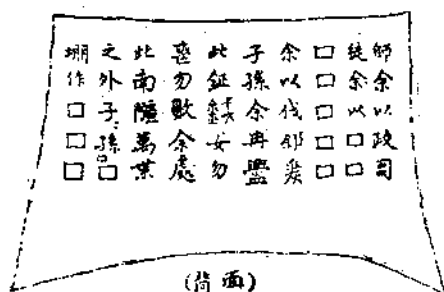 師余以政司
徒余以□□
□□□□□
余以伐郐
子孫余冉鑒
此鉦女勿
喪勿敗余處
此南疆萬葉
之外子孫□
堋作□□□
(背面)